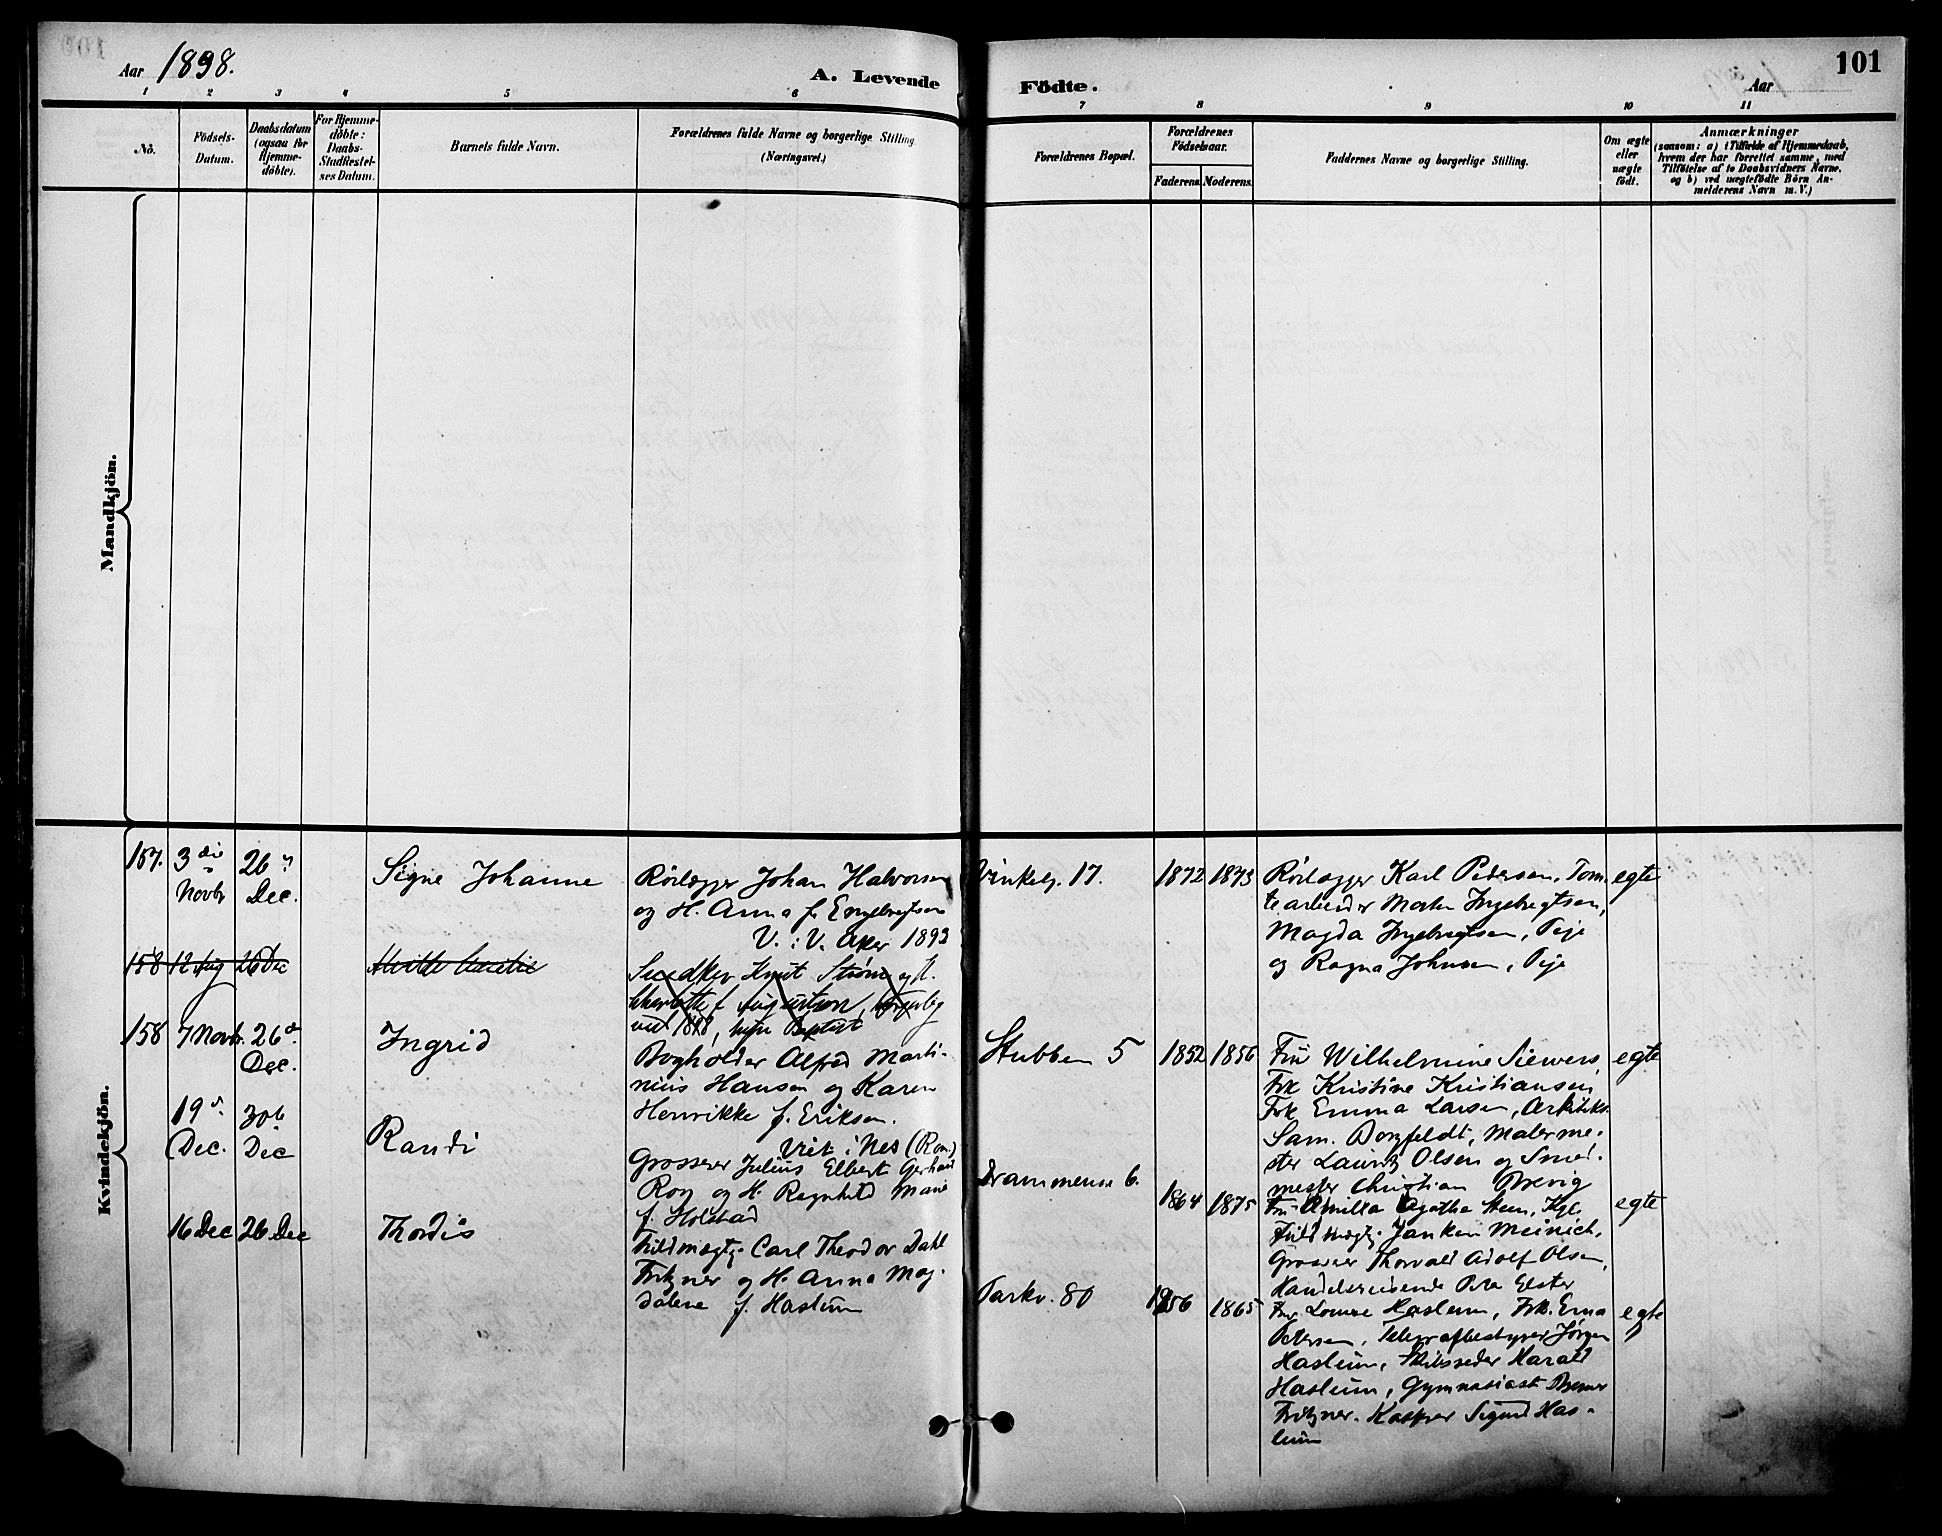 Aar 1898.
A. Levende Födte.
Aar
101
1 2 3 4 5 6 7 8 9 10 11
No.
Födsels-
Datum.
Daabsdatum
(ogsaa for
Hjemme-
döbte).
For Hjemme-
döbte:
Daabs-
Stadfæstel-
ses Datum.
Barnets fulde Navn.
Forældrenes fulde Navne og borgerlige Stilling
(Næringsvei.)
Forældrenes Bopæl.
Forældrenes
Födselsaar.
Faderens. Moderens.
Faddernes Navne og borgerlige Stilling.
Om ægte
eller
uægte
födt.
Anmærkninger
(saasom: a) i Tilfælde af Hjemmedaab,
hvem der har forrettet samme, med
Tilföielse af to Daabsvidners Navne,
og b) ved uægtefödte Börn An-
melderens Navn m. V.)
Mandkjön.
Kvindekjön.
157.
3die
Novbr
26
Dec.
Signe Johanne
Rørlægger Johan Halvorsen
og H. Anna f. Engebregtsen
V. i V. Aker 1893
17.
1872 1873
Rørlægger Karl Pedersen, Tom-
tearbeider Morten Ingebregtsen,
Magda Ingebregtsen, Pige
og Ragna Johnsen, Pige
egte
158 12 Aug 26 Dec
Knut Strøm og H.
f. Augustson, borgerlig
viet 1898, Baptist
158
7 Novbr.
26
Dec.
Ingrid
Bogholder Alfred Marti-
nius Hansen og Karen
Henrikke f. Eriksen.
Viet i Nes (Rom.)
Stubben 5
1852 1856
Fru Wilhelmine Siewers,
Frk Kristine Kristiansen,
Frk Emma Larsen, Arkitekt
Sam. Borgfeldt, Malerme-
ster Lauritz Olsen og Smed-
mester Christian Brevig
egte
19
Dec.
30
Dec
Randi
Grosserer Julius Elbert Gerhard
Roy og H. Ragnhild Marie
f. Holstad
Drammensv 6.
1864 1875
Fru Amilla Agathe Steen, Kgl.
Fuldmægtig Janken Meinich,
Grosserer Thorvald Adolf Olsen,
Handelsreisende Elster
egte
16 Dec 26 Dec
Thordis
Fuldmægtig Carl Theodor Dahl
Fritzner og H. Anna Mag-
dalene f. Haslum
Parkv. 80
1856 1865
Fru Louise Haslum, Frk. Erna
Petersen, Telegrafbestyrer Jørgen
Haslum, Skibsreder Harald
Haslum, Gymnasiast
Fritzner. Kasserer Sigurd Has-
lum
egte